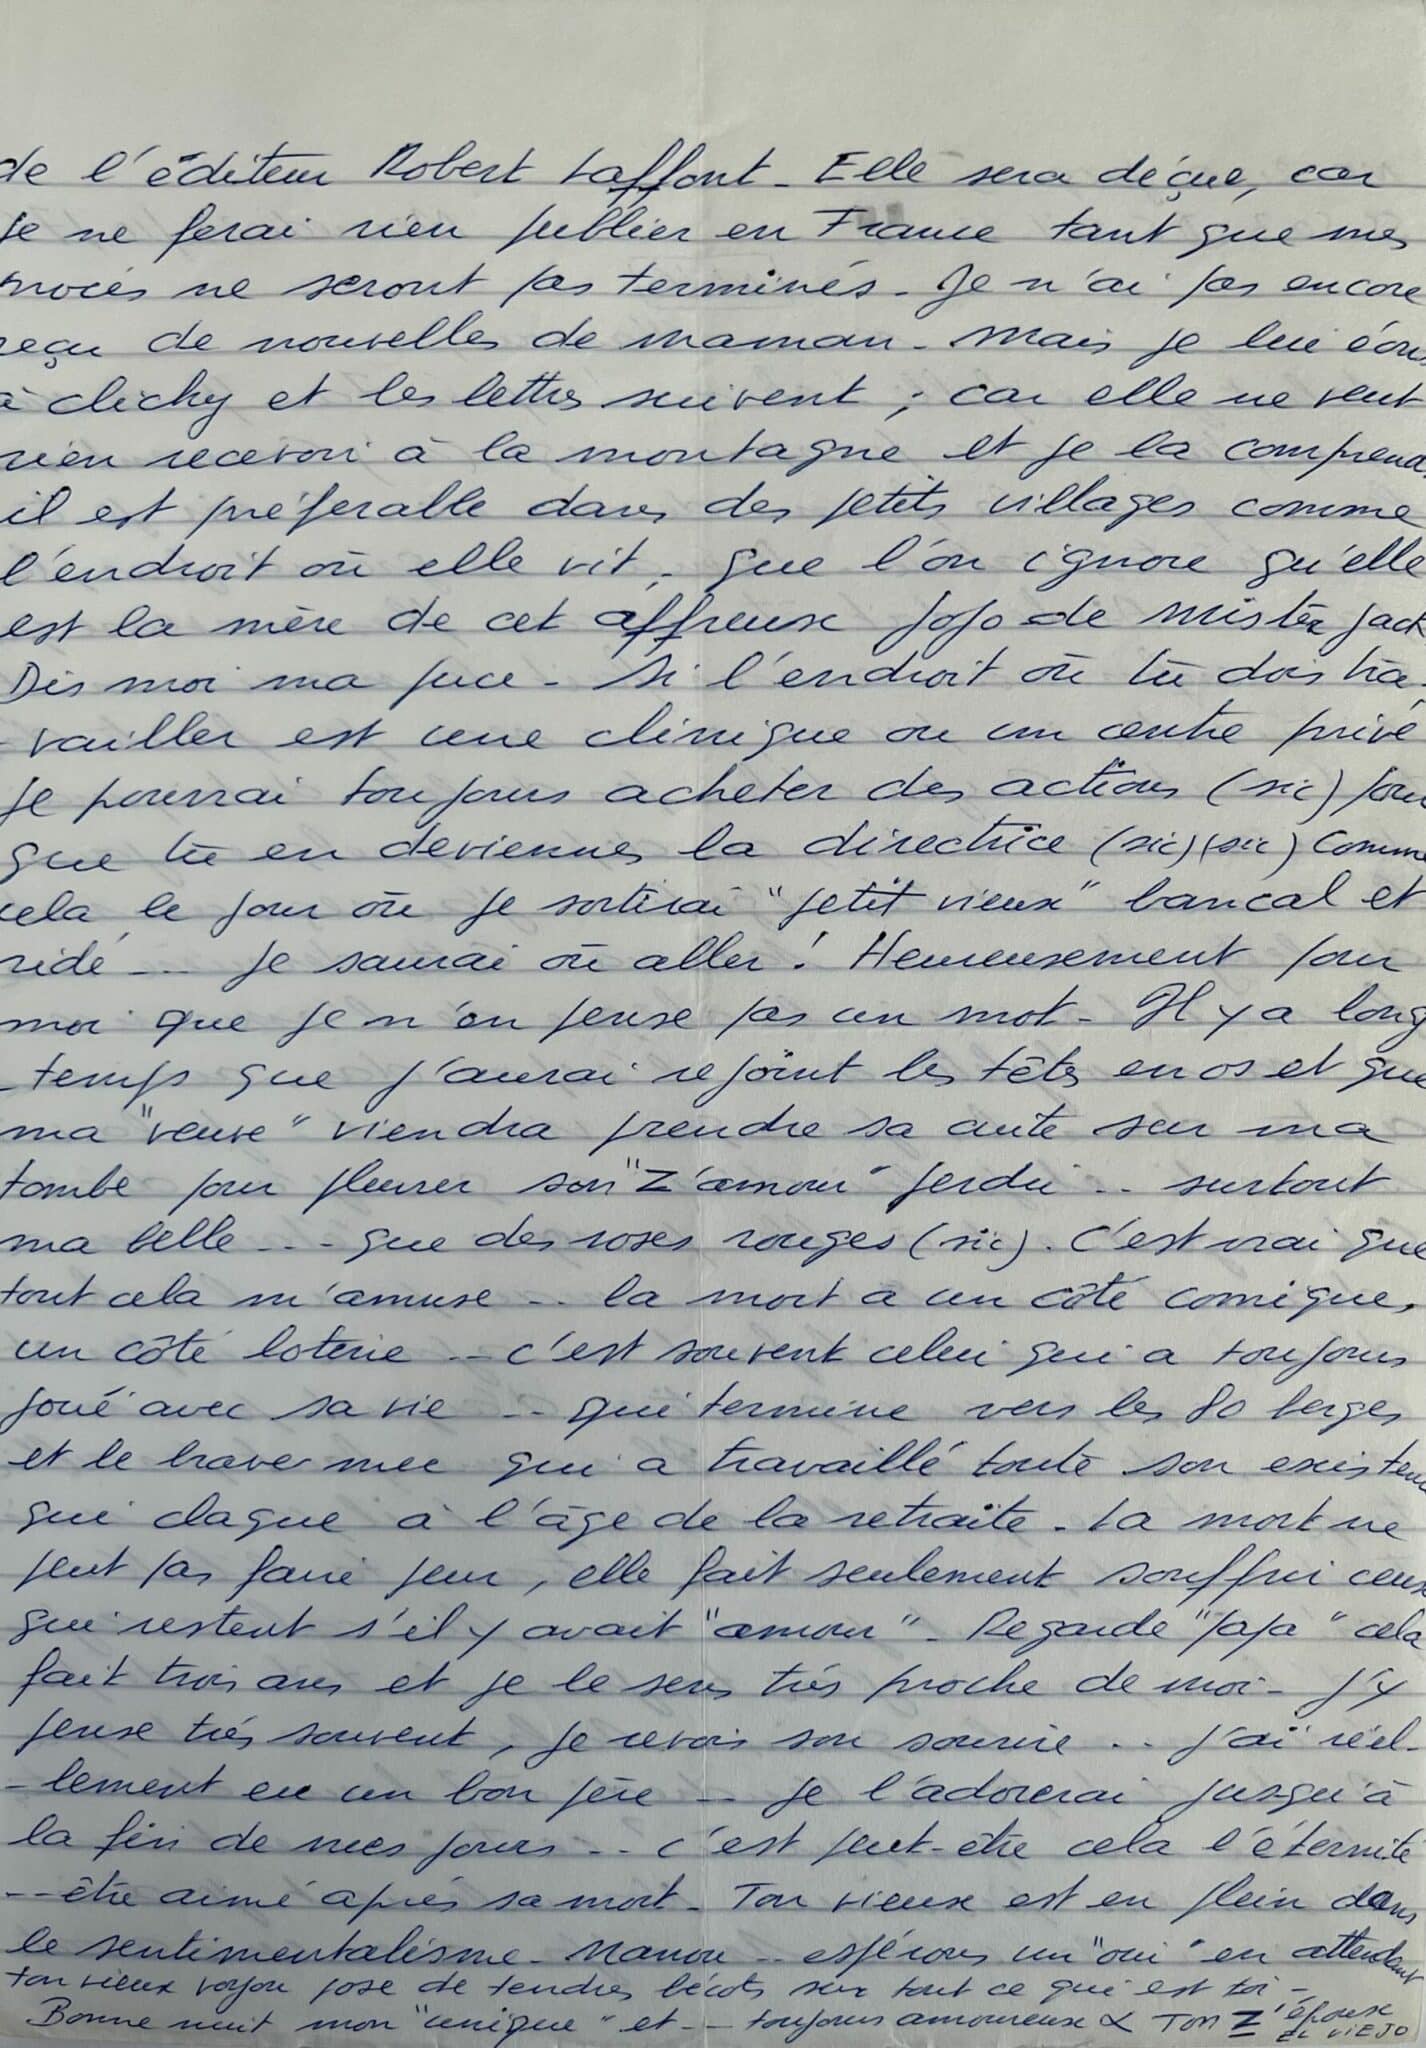 de l'éditeur Robert Laffont - Elle sera déçue, car
je ne ferai rien publier en France tant que mes
procès ne seront pas terminés - Je n'ai pas encore
reçu de nouvelles de maman - Mais je lui écris
à Clichy et les lettres suivent ; car elle ne veut
rien recevoir à la montagne et je la comprend
il est préférable dans des petits villages comme
l'endroit où elle vit, que l'on ignore qu'elle
est la mère de cet affreux jojo de Mister Jack
Dis moi ma puce - Si l'endroit où tu dois tra-
-vailler est une clinique ou un centre privé
je pourrai toujours acheter des actions (sic) pour
que tu en deviennes la directrice (sic) (sic) Comme
cela le jour où je sortirai "petit vieux" bancal et
ridé -- je saurai où aller ! Heureusement pour
moi que je n'en pense pas un mot - Il y a long
-temps que j'aurai rejoint les têtes en os et que
ma "veuve" viendra prendre sa cuite sur ma
tombe pour pleurer son "Z'amour" perdu .. surtout
ma belle --- que des roses rouges (sic). C'est vrai que
tout cela m'amuse -- la mort a un côté comique,
un côté loterie -- c'est souvent celui qui a toujours
joué avec sa vie -- qui termine vers les 80 berges
et le brave mec qui a travaillé toute son existence
qui claque à l'âge de la retraite - La mort ne
peut pas faire peur, elle fait seulement souffrir ceux
qui restent s'il y avait "amour" - Regarde "papa" cela
fait trois ans et je le sens très proche de moi - J'y
pense très souvent, je revois son sourire .. j'ai réel-
-lement eu un bon père -- je l'adorerai jusqu'à
la fin de mes jours -- c'est peut-être cela l'éternité
-- être aimé après sa mort - Ton vieux est en plein dans
le sentimentalisme - Manou -- espérons un "oui" en attendant
ton vieux voyou pose de tendres bécots sur tout ce qui est toi -
Bonne nuit mon "unique" et -- toujours amoureux & Ton Z'époux
El VIEJO